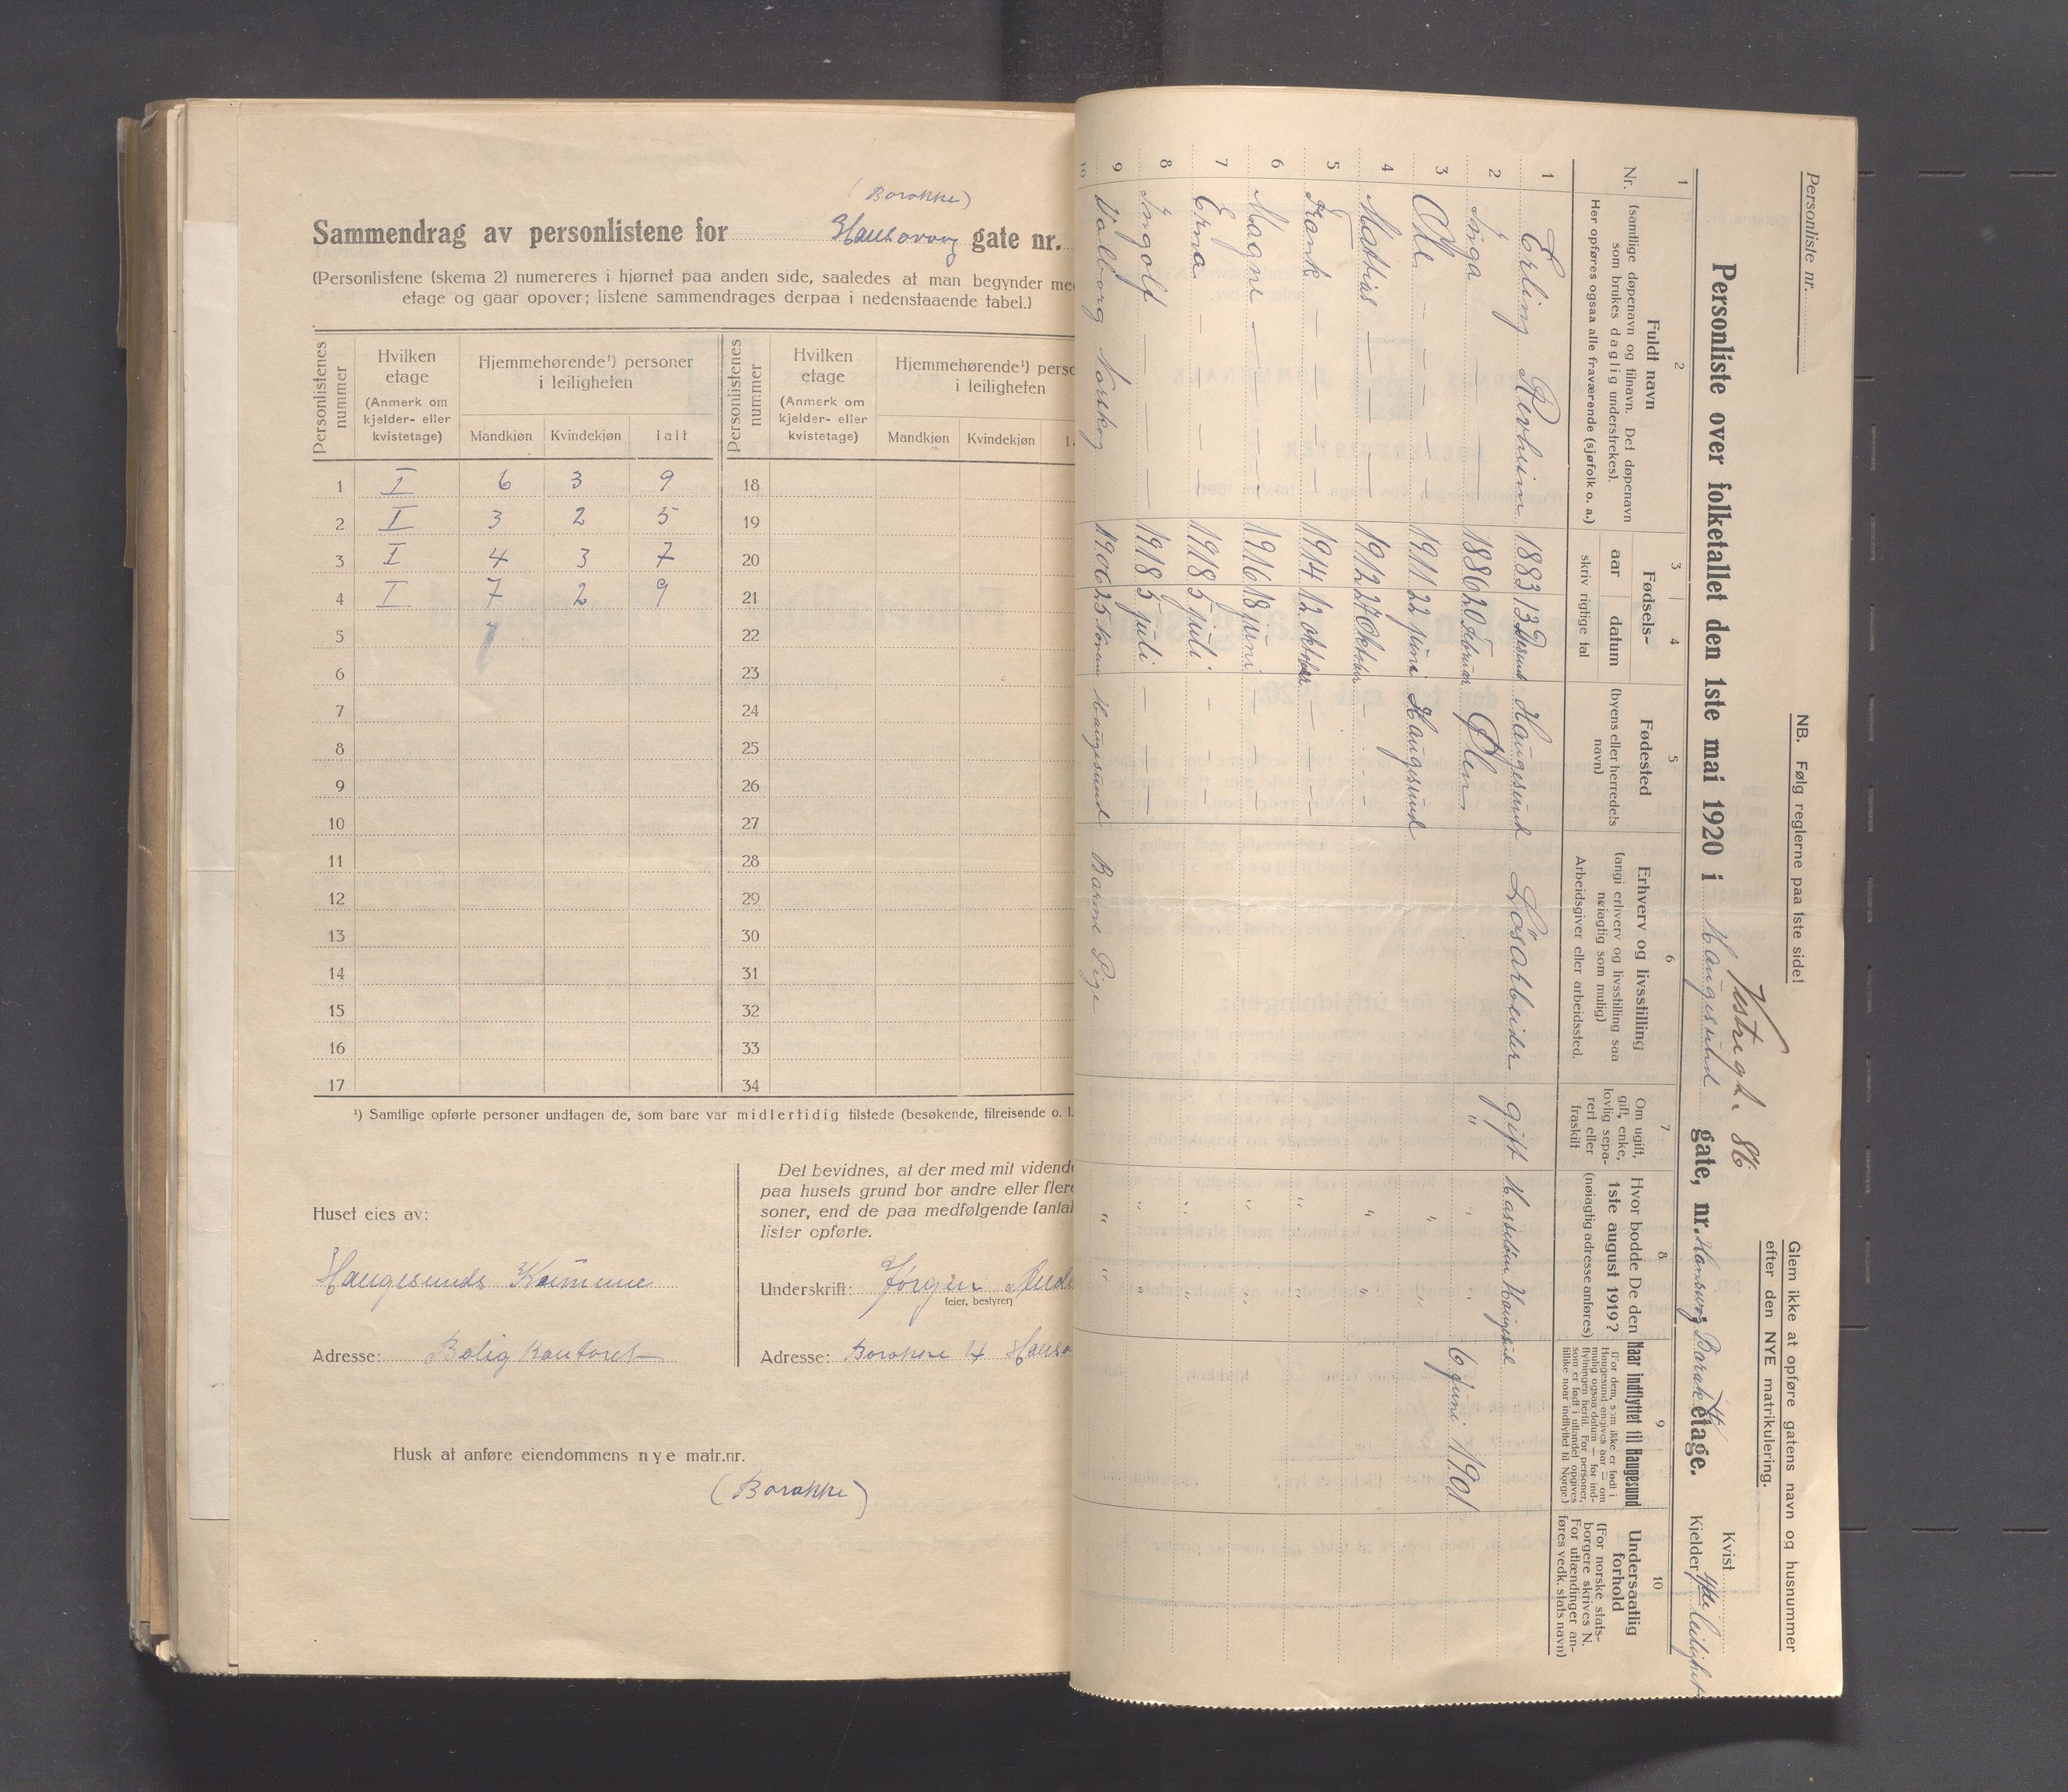 (Barakke)
Sammendrag av personlistene for gate nr.
(Personlistene (skema 2) numereres i hjørnet paa anden side, saaledes at man begynder me
etage og gaar opover; listene sammendrages derpaa i nedenstaaende tabel.)
Personlistenes nummer
Hvilken etage (Anmerk om kjelder- eller kvistetage)
Hjemmehørende¹) personer i leiligheten
Mandkjøn Kvindekjøn ialt
Personlistenes nummer
Hvilken etage (Anmerk om kjelder- eller kvistetage)
Hjemmehørende¹) perso
i leiligheten
Mandkjøn Kvindekjøn
1 I 6 3 9 18
2 I 3 2 5 19
3 I 4 3 7 20
4 I 7 2 9 21
5 22
6 23
7 24
8 25
9 26
10 27
11 28
12 29
13 30
14 31
15 32
16 33
17 34
¹) Samtlige opførte personer undtagen de, som bare var midlertidig tilstede (besøkende, tilreisende o. l.
Huset eies av:
Haugesunds Kommune
Adresse: Boligkontoret
Det bevidnes, at der med mit vidende
paa husets grund bor andre eller flere
soner, end de paa medfølgende (antal
lister opførte.
Underskrift: Jørgen
(eier, bestyrer)
Adresse: Barakke 4
Husk at anføre eiendommens nye matr.nr.
(Barakke)
Personliste nr.
NB. Følg reglerne paa 1ste side!
Glem ikke at opføre gatens navn og husnummer
efter den NYE matrikulering.
Vestregt. 86
Personliste over folketallet den 1ste mai 1920 i Haugesund gate, nr. Barak etage.
Kvist
Kjelder Leilighet
1 2 3 4 5 6 7 8 9 10
Nr.
Fuldt navn
(samtlige døpenavn og tilnavn. Det døpenavn
som brukes daglig understrekes).
Her opføres ogsaa alle fraværende (sjøfolk o. a.)
Fødsels-
aar datum
skriv rigtige tal
Fødested
(byens eller herredets
navn)
Erhverv og livsstilling
(angi erhverv og livsstilling saa
nøiagtig som mulig)
Arbeidsgiver eller arbeidssted.
Om ugift,
gift, enke,
lovlig sepa-
rert eller
fraskilt
Hvor bodde De den
1ste august 1919?
(nøiagtig adresse anføres)
Naar indflyttet til Haugesund
(For dem, som ikke er født i
Haugesund angives aar — om
mulig ogsaa datum — for ind-
flytningen hertil. For personer,
som er født i utlandet opgives
tillike naar indflyttet til Norge.)
Undersaatlig
forhold
(For norske stats-
borgere skrives N.
For utlændinger an-
føres vedk. stats navn)
1 Erling Revheim 1883 13 Haugesund Løsarbeider gift
2 Inga — — 1886 20 Februar Ølen " " " 6 juni 1901
3 Odd — — — 1911 22 juni Haugesund " "
4 Mathias — — — 1912 27 Oktober — — " "
5 Frank — — — 1914 12 oktober — — " "
6 Magne — — — 1916 18 juni — — " "
7 Erna — — — 1918 5 juli — — " "
8 Ingolf — — — 1918 5 juli — — " "
9 Valborg Norskog 1906 25 Haugesund Barne Pige " "
10